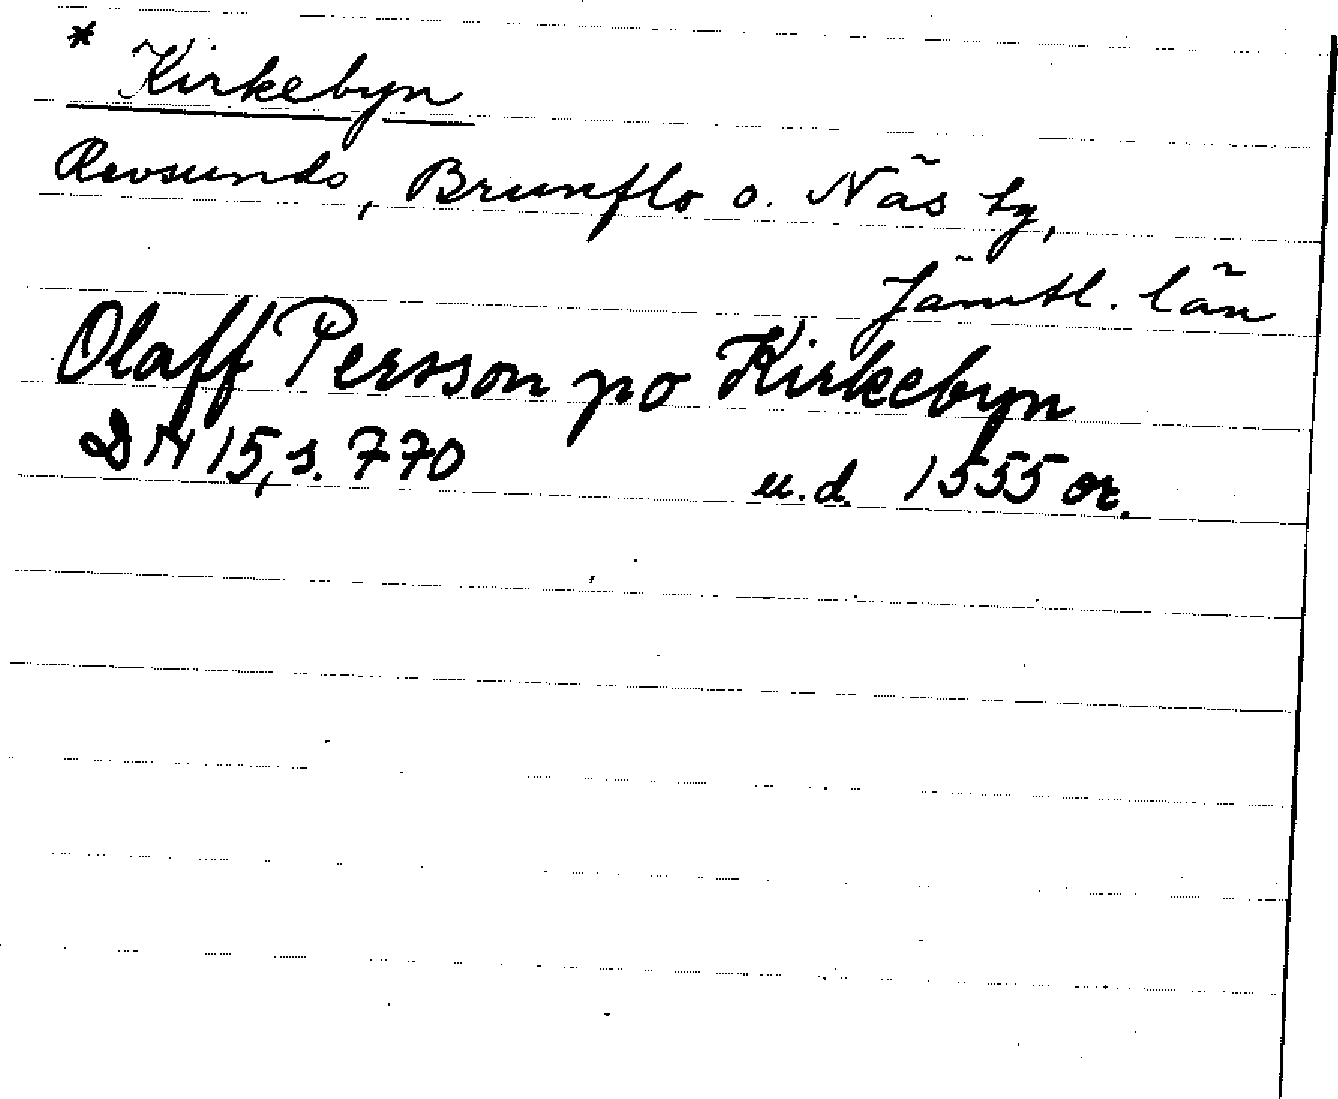 * Kirkebyn
Revsunds, Brunflo o. Näs tg,
Jämtl. län
Olaff Persson po Kirkebyn
DN 15, s. 770 u.d. 1555 or.